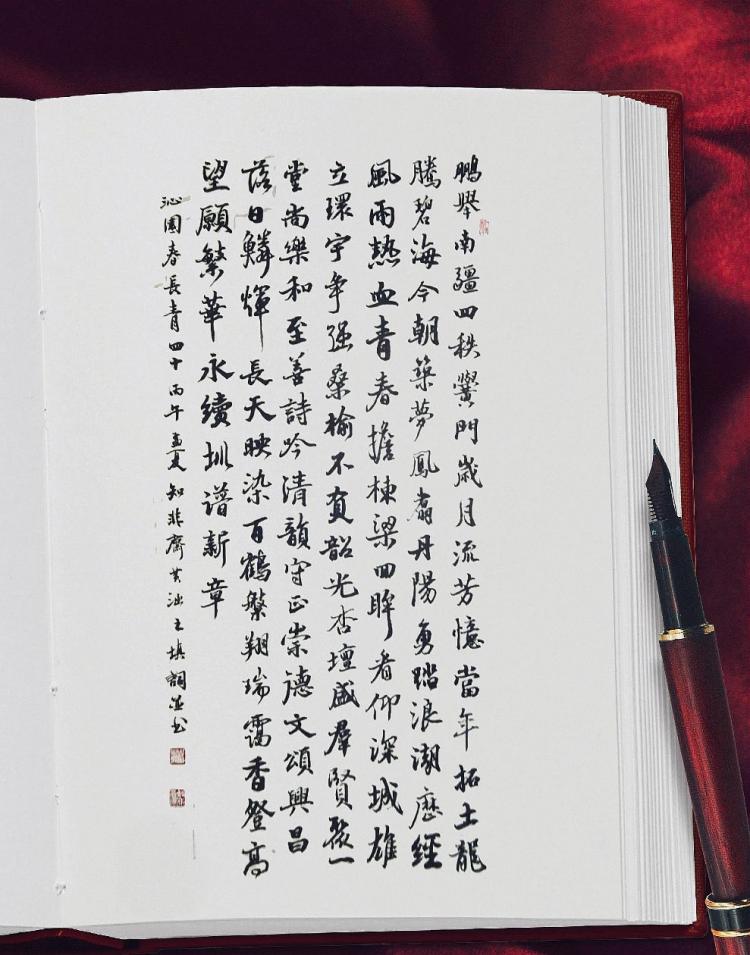 鵬舉南疆四秩黌門歲月流芳憶當年拓土龍
騰碧海今朝築夢鳳翥丹陽勇踏浪潮歷經
風雨熱血青春擔棟梁回眸看仰深城雄
立環宇爭强桑榆不負韶光杏壇盛羣賢聚一
堂尚樂和至善詩吟清韻守正崇德文頌興昌
落日鱗輝長天映染百鶴繁翔瑞靄香登高
望願繁華永續圳譜新章
沁園春長青四十丙午孟夏知非齋之填詞並书